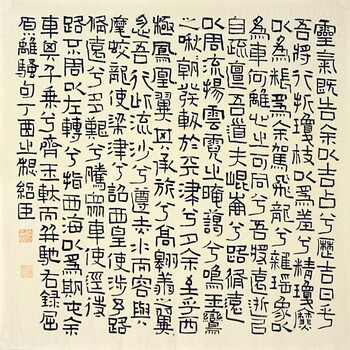 靈氛既告余以吉占兮歷吉日乎
吾將行折瓊枝以爲羞兮精瓊爢
以爲粻爲余駕飛龍兮雜瑤象以
爲車何離心之可同兮吾將遠逝以
自疏邅吾道夫崑崙兮路脩遠
以周流揚雲霓之晻藹兮鳴玉鸞
之啾啾朝發軔於天津兮夕余至乎西
極鳳凰翼其承旂兮高翱翔之翼翼
忽吾行此流沙兮遵赤水而容與
麾蛟龍使梁津兮詔西皇使涉予路
脩遠以多艱兮騰眾車使徑待
路不周以左轉兮指西海以爲期屯余
車其千乘兮齊玉軑而並馳右錄屈
原離騷句丁酉之秋